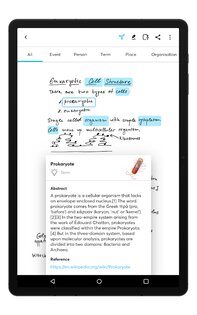 All Event Person Term Place Organisation
Eukaryotic Cell Structure
There are two types of cells
prokaryotic
eukaryotic
Single celled organism with simple
Cells
Prokaryote
Term
Abstract
A prokaryote is a cellular organism that lacks
an envelope-enclosed nucleus.[1] The word
prokaryote comes from the Greek πρό (pro,
'before') and κάρυον (karyon, 'nut' or 'kernel').
[2][3] In the two-empire system arising from
the work of Édouard Chatton, prokaryotes
were classified within the empire Prokaryota.
[4] But in the three-domain system, based
upon molecular analysis, prokaryotes are
divided into two domains: Bacteria and
Archaea.
Reference
https://en.wikipedia.org/wiki/Prokaryote